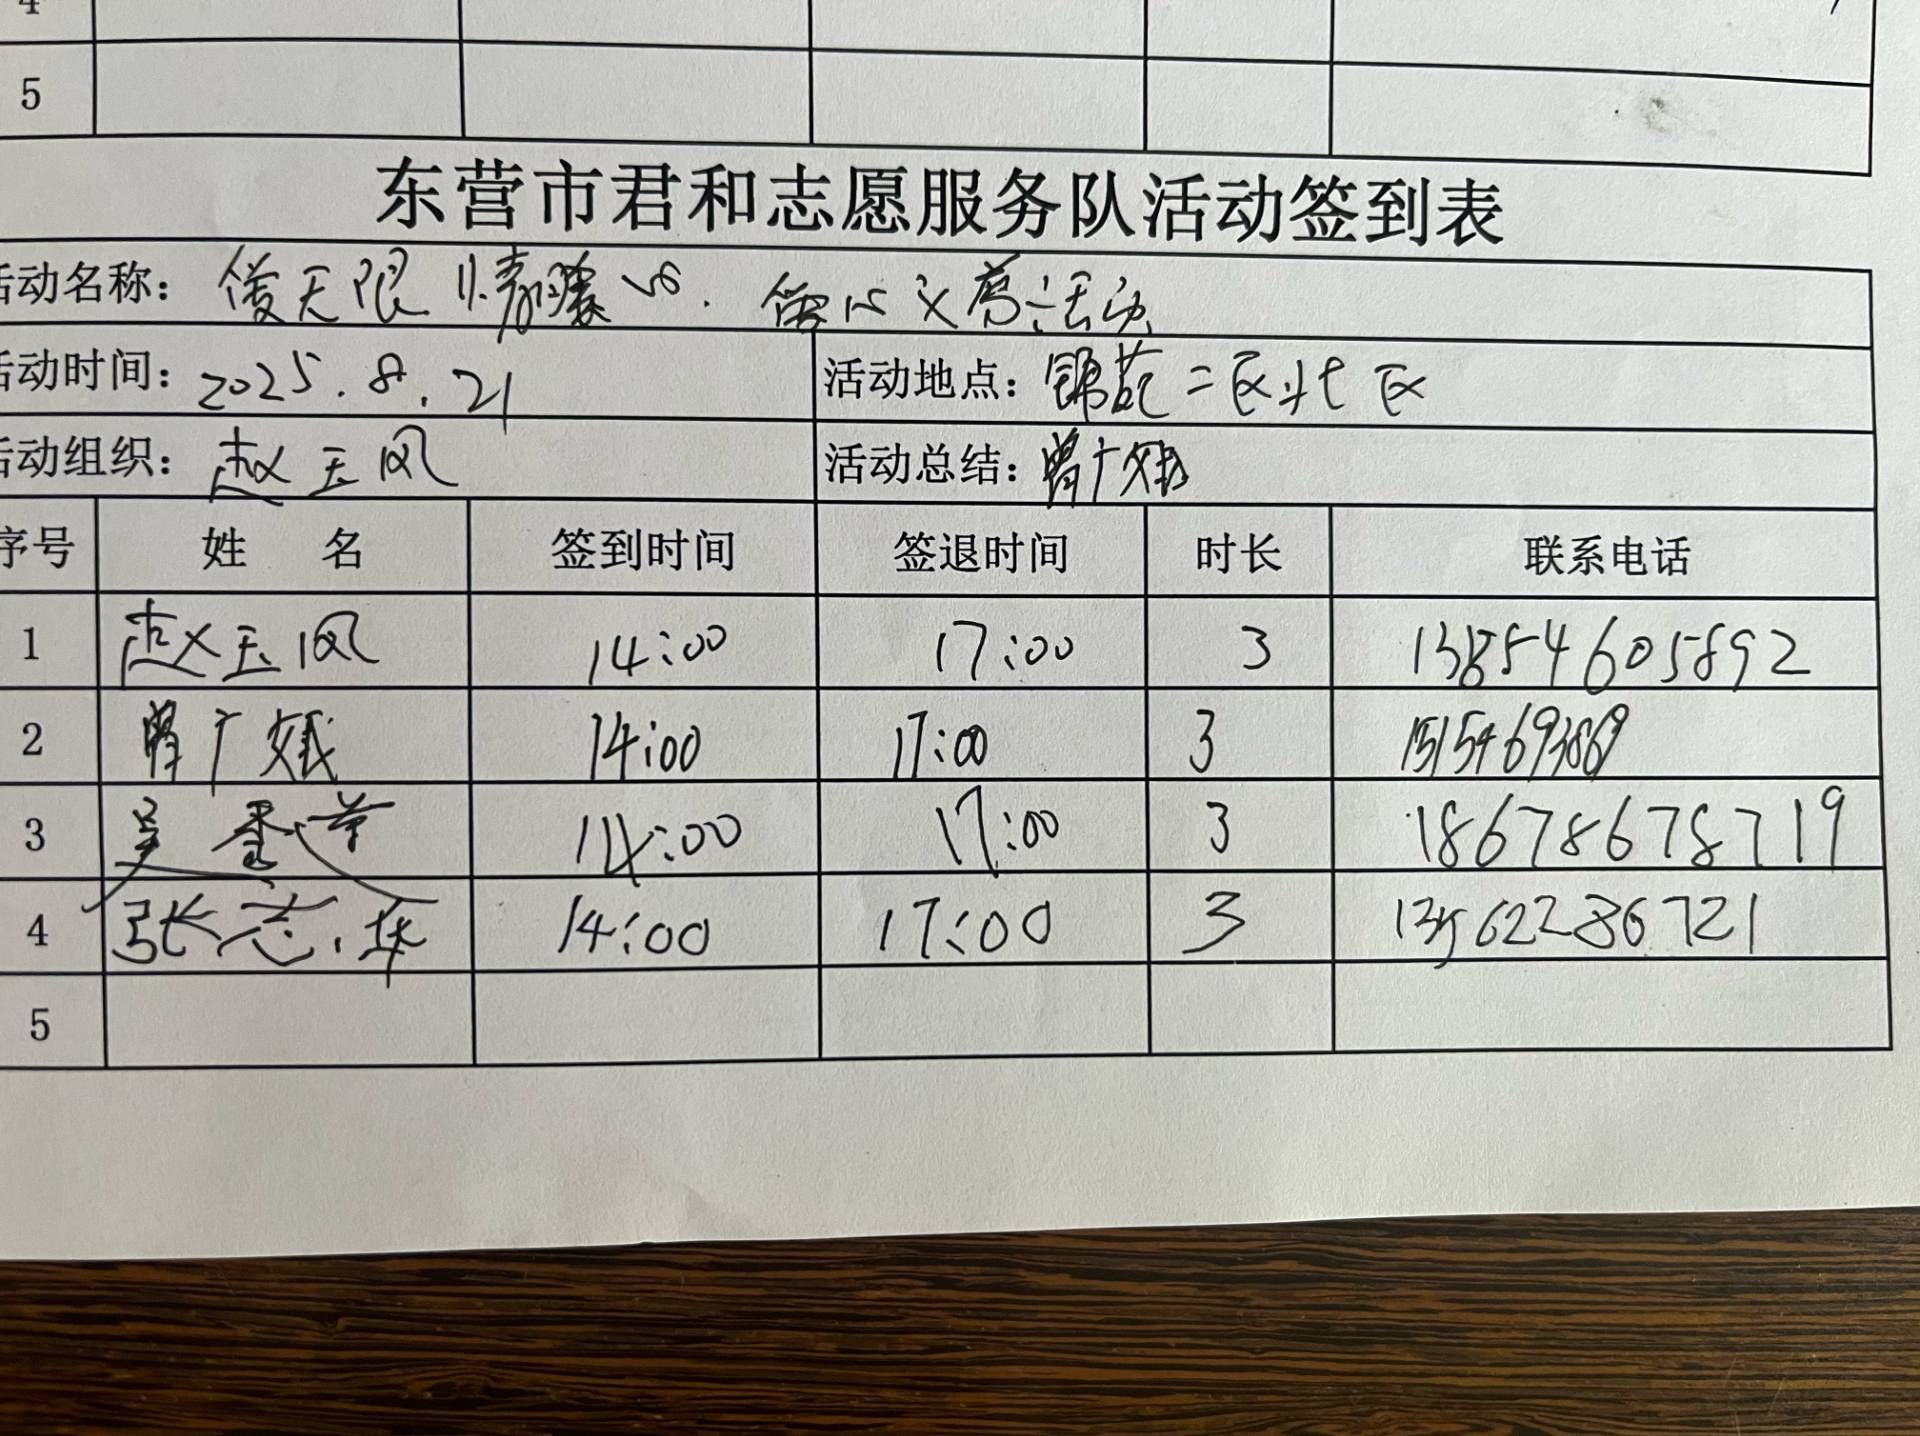 4
5
东营市君和志愿服务队活动签到表
活动名称: 天限 情暖 活动
活动时间: 2025.8.21 活动地点: 锦苑二区北区
活动组织: 赵玉凤 活动总结: 曾广娥
序号 姓 名 签到时间 签退时间 时长 联系电话
1 赵玉凤 14:00 17:00 3 13854605892
2 曾广娥 14:00 17:00 3
3 吴香 14:00 17:00 3 18678678719
4 张志华 14:00 17:00 3 13562286721
5